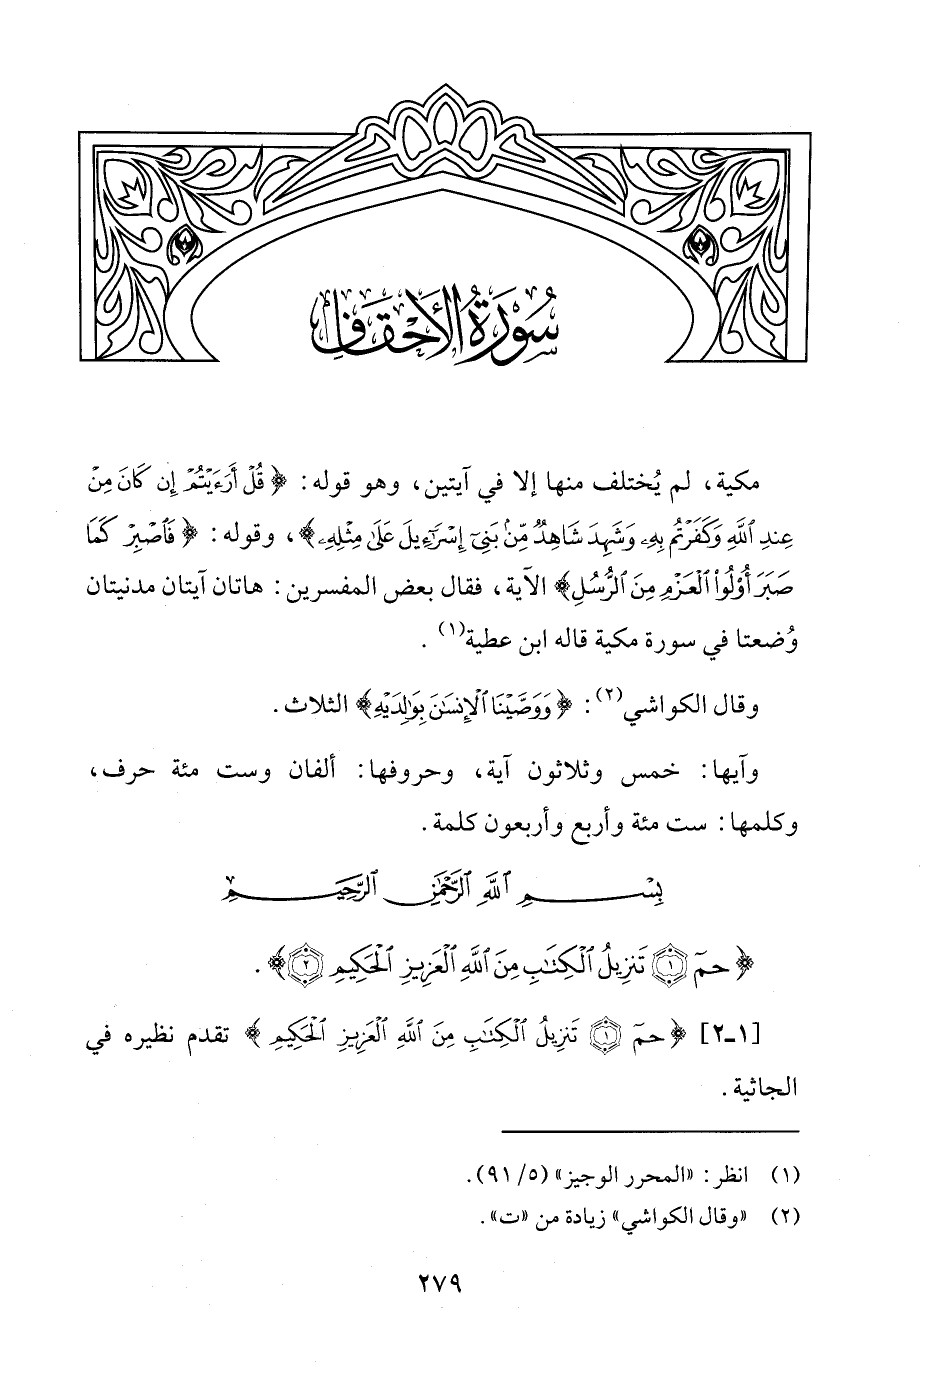 سُورَةُ الأَحْقَافِ
مكية، لم يُختلف منها إلا في آيتين، وهو قوله: ﴿قُلْ أَرَءَيْتُمْ إِن كَانَ مِنْ
عِندِ ٱللَّهِ وَكَفَرْتُم بِهِۦ وَشَهِدَ شَاهِدٌ مِّنۢ بَنِىٓ إِسْرَٰٓءِيلَ عَلَىٰ مِثْلِهِۦ﴾، وقوله: ﴿فَٱصْبِرْ كَمَا
صَبَرَ أُوْلُواْ ٱلْعَزْمِ مِنَ ٱلرُّسُلِ﴾ الآية، فقال بعض المفسرين: هاتان آيتان مدنيتان
وُضعتا في سورة مكية قاله ابن عطية(١).
وقال الكواشي(٢): ﴿وَوَصَّيْنَا ٱلْإِنسَٰنَ بِوَٰلِدَيْهِ﴾ الثلاث.
وآيها: خمس وثلاثون آية، وحروفها: ألفان وست مئة حرف،
وكلمها: ست مئة وأربع وأربعون كلمة.
بِسْمِ ٱللَّهِ ٱلرَّحْمَٰنِ ٱلرَّحِيمِ
﴿حمٓ ١ تَنزِيلُ ٱلْكِتَٰبِ مِنَ ٱللَّهِ ٱلْعَزِيزِ ٱلْحَكِيمِ ٢﴾.
[١-٢] ﴿حمٓ ١ تَنزِيلُ ٱلْكِتَٰبِ مِنَ ٱللَّهِ ٱلْعَزِيزِ ٱلْحَكِيمِ﴾ تقدم نظيره في
الجاثية.
(١) انظر: «المحرر الوجيز» (٥/ ٩١).
(٢) «وقال الكواشي» زيادة من «ت».
٢٧٩